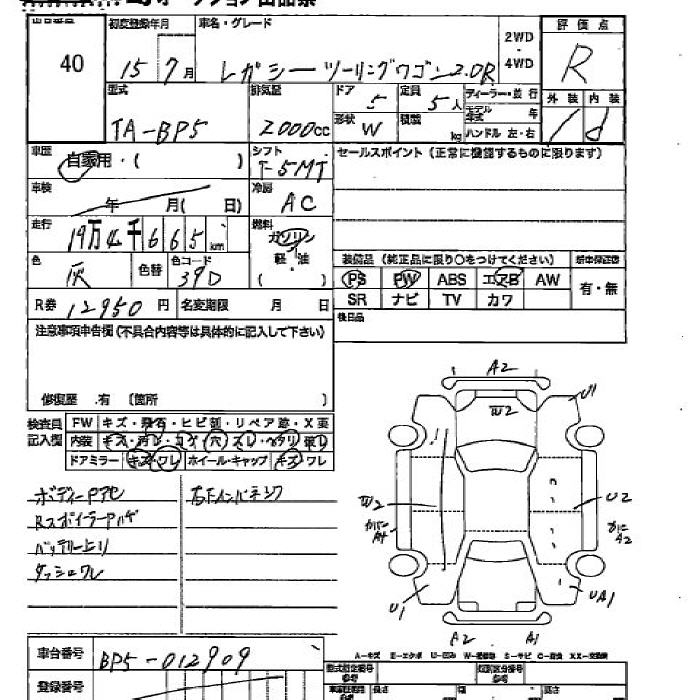 40
初度登録年月
15 7月
車名・グレード
レガシーツーリングワゴン2.0R
2WD
・
4WD
評価点
R
外装 内装
型式
TA-BP5
排気量
2000cc
ドア
5
定員
5人
形状
W
積載
kg
ディーラー・並行
モデル
年式
年
ハンドル 左・右
車歴
自家用・( )
シフト
F-5MT
車検
年 月( 日)
冷房
AC
走行
19万4千665km
燃料
ガソリン
軽・油
( )
色
灰
色替
色コード
39D
R券 12950円
名変期限 月 日
セールスポイント (正常に機能するものに限ります)
装備品 (純正品に限り○をつけてください)
新車保証書
PS PW ABS エアB AW
SR ナビ TV カワ
有・無
後日品
注意事項申告欄(不具合内容等は具体的に記入して下さい)
修復歴 .有 〔箇所 〕
検査員
記入欄
FW キズ・飛石・ヒビ割・リペア跡・X要
内装 キズ・汚レ・コゲ・穴・スレ・ヘタリ・破レ
ドアミラー キズ・ワレ ホイール・キャップ キズ・ワレ
Rスポイラーハゲ
バッテリー上リ
ダッシュワレ
A2
W2
U1
W2
U2
A4
A2
U1
UA1
A2
A1
A-キズ E-エクボ U-凹ミ W-補修跡 S-サビ C-腐食 XX-交換済
車台番号
BP5-012909
登録番号
型式指定番号
類別区分番号
長さ
幅
高さ